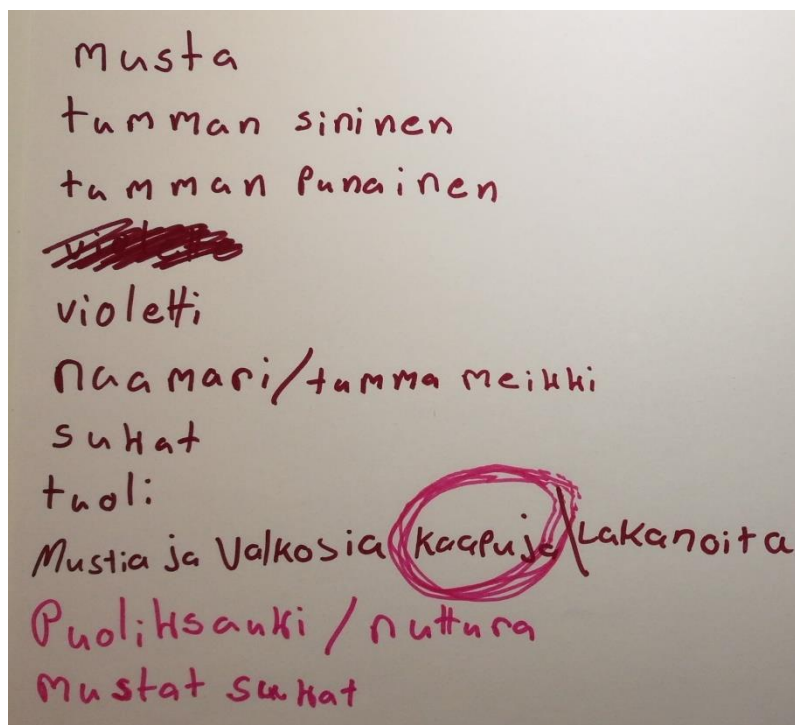 musta
tumman sininen
tumman Punainen
violetti
naamari/tumma meikki
sukat
tuoli
Mustia ja Valkosia kaapuja\Lakanoita
Puoliksauki / nuttura
mustat sukat